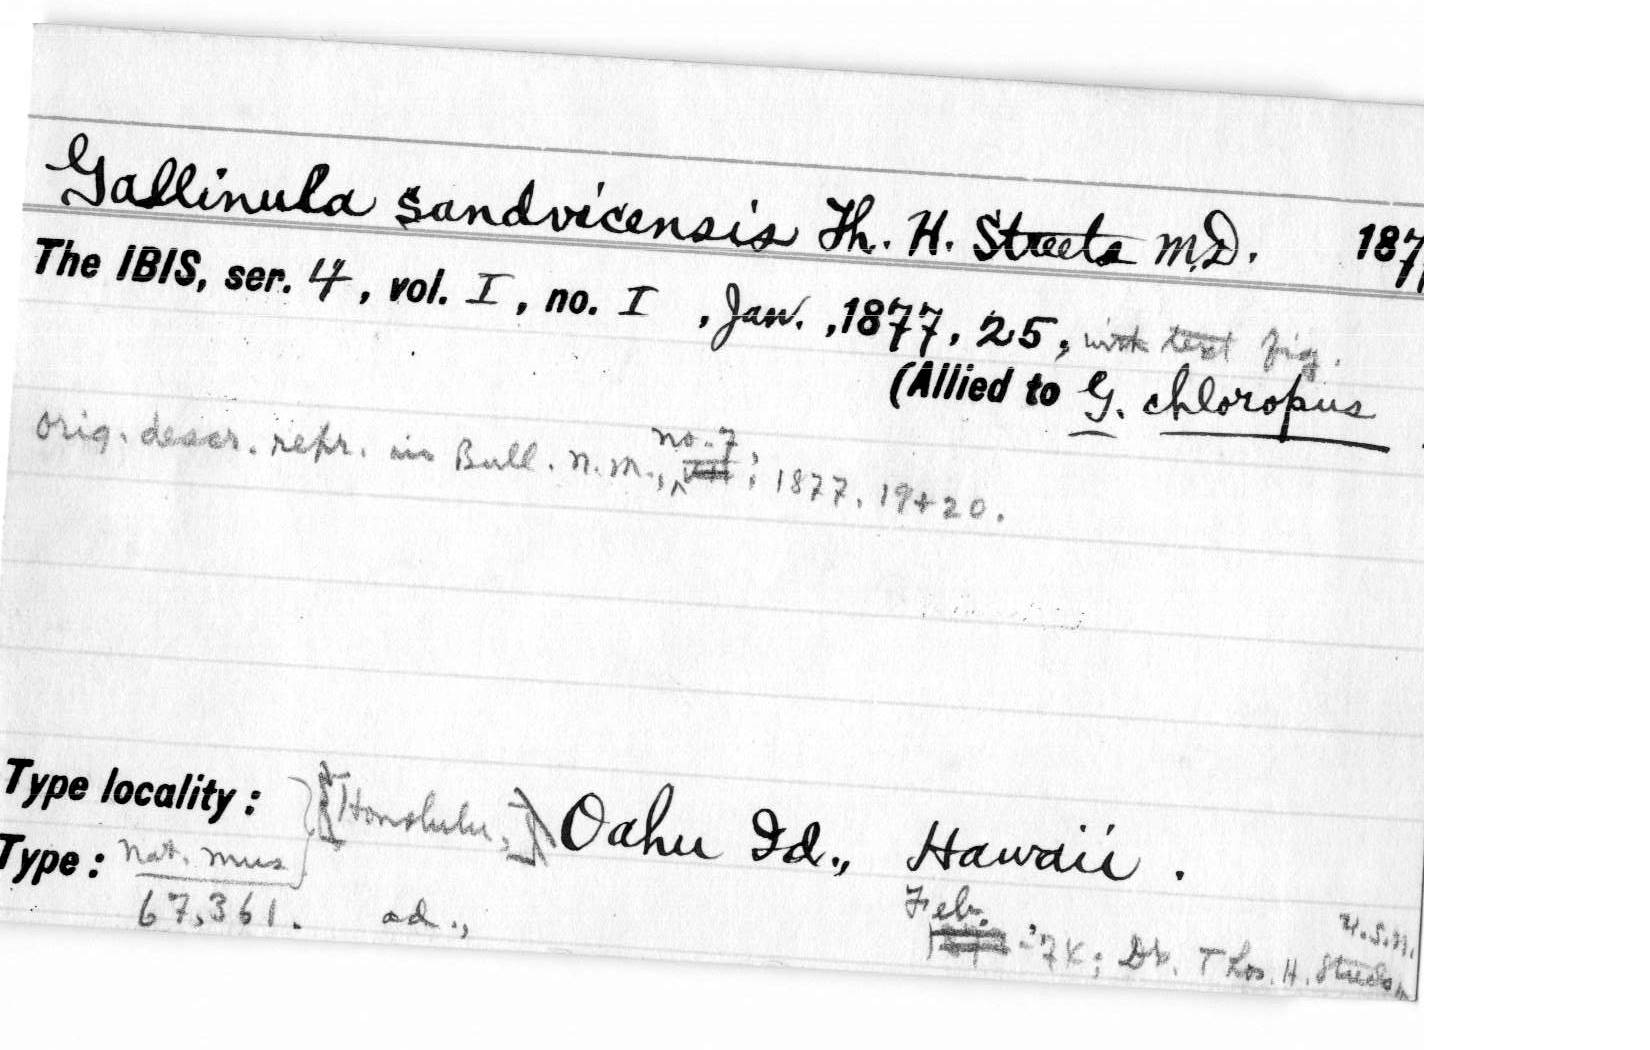 Gallinula sandvicensis Th. H. Streets M.D. 1877
The IBIS, ser. 4, vol. I, no. I, Jan., 1877, 25, with text fig.
(Allied to G. chloropus
orig. descr. repr. in Bull. N.M., no. 7; 1877, 19+20.
Type locality: [Honolulu,] Oahu Id., Hawaii.
Type: Nat. Mus
67,361. ad., Feb. '74; Dr. Thos. H. Streets, U.S.N.